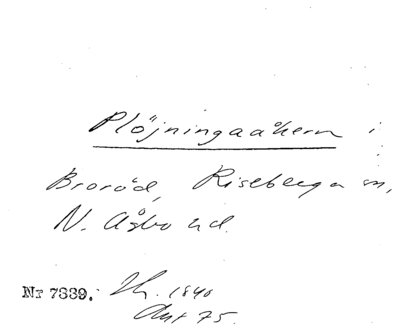 Plöjningaåkern i
Broröd, Riseberga sn,
N. Åsbo hd.
Nr 7339. 1840
75.